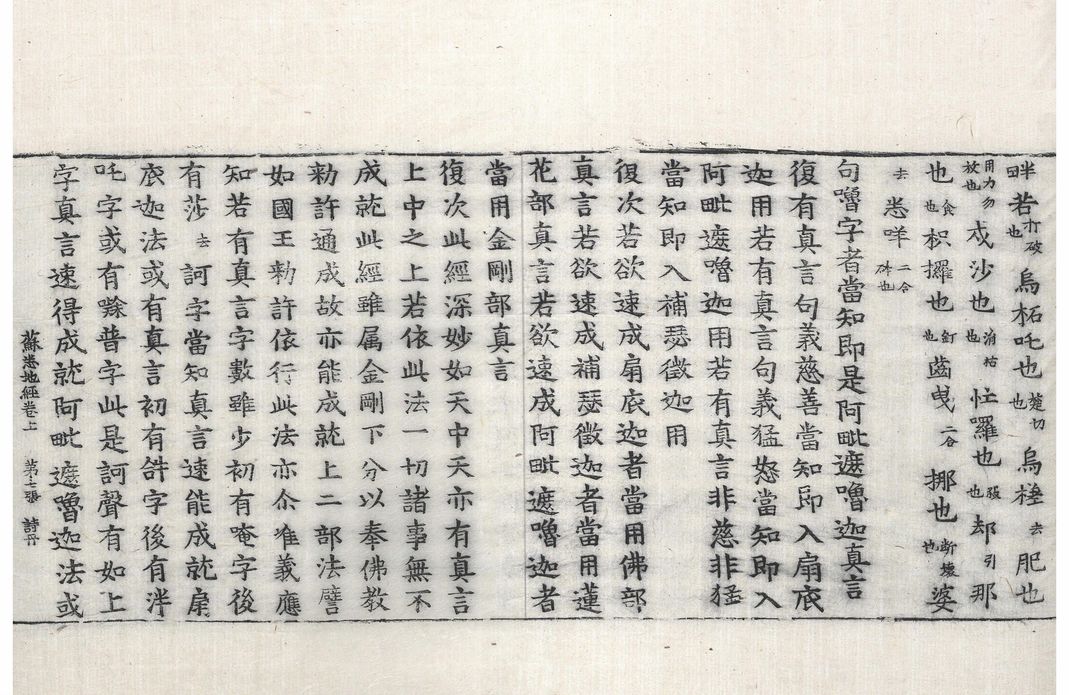 泮吽若亦破也烏柘吒也楚切也烏椪去肥也
用力勿放也戍沙也消枯也怯羅也張也却引那
也食也枳攞也釘也齒曳二合挪也斷壞也婆
去恙咩二合碎也
句嚕字者當知即是阿毗遮嚕迦真言
復有真言句義慈善當知即入扇底
迦用若有真言句義猛怒當知即入
阿毗遮嚕迦用若有真言非慈非猛
當知即入補瑟徵迦用
復次若欲速成扇底迦者當用佛部
真言若欲速成補瑟徵迦者當用蓮
花部真言若欲速成阿毗遮嚕迦者
當用金剛部真言
復次此經深妙如天中天亦有真言
上中之上若依此法一切諸事無不
成就此經雖属金剛下分以奉佛教
勑許通成故亦能成就上二部法譬
如國王勑許依行此法亦尒准義應
知若有真言字數雖少初有唵字後
有莎去訶字當知真言速能成就扇
底迦法或有真言初有𤙖字後有泮
吒字或有㗭普字此是訶聲有如上
字真言速得成就阿毗遮嚕迦法或
蘇悉地經卷上 第七張 詩丹